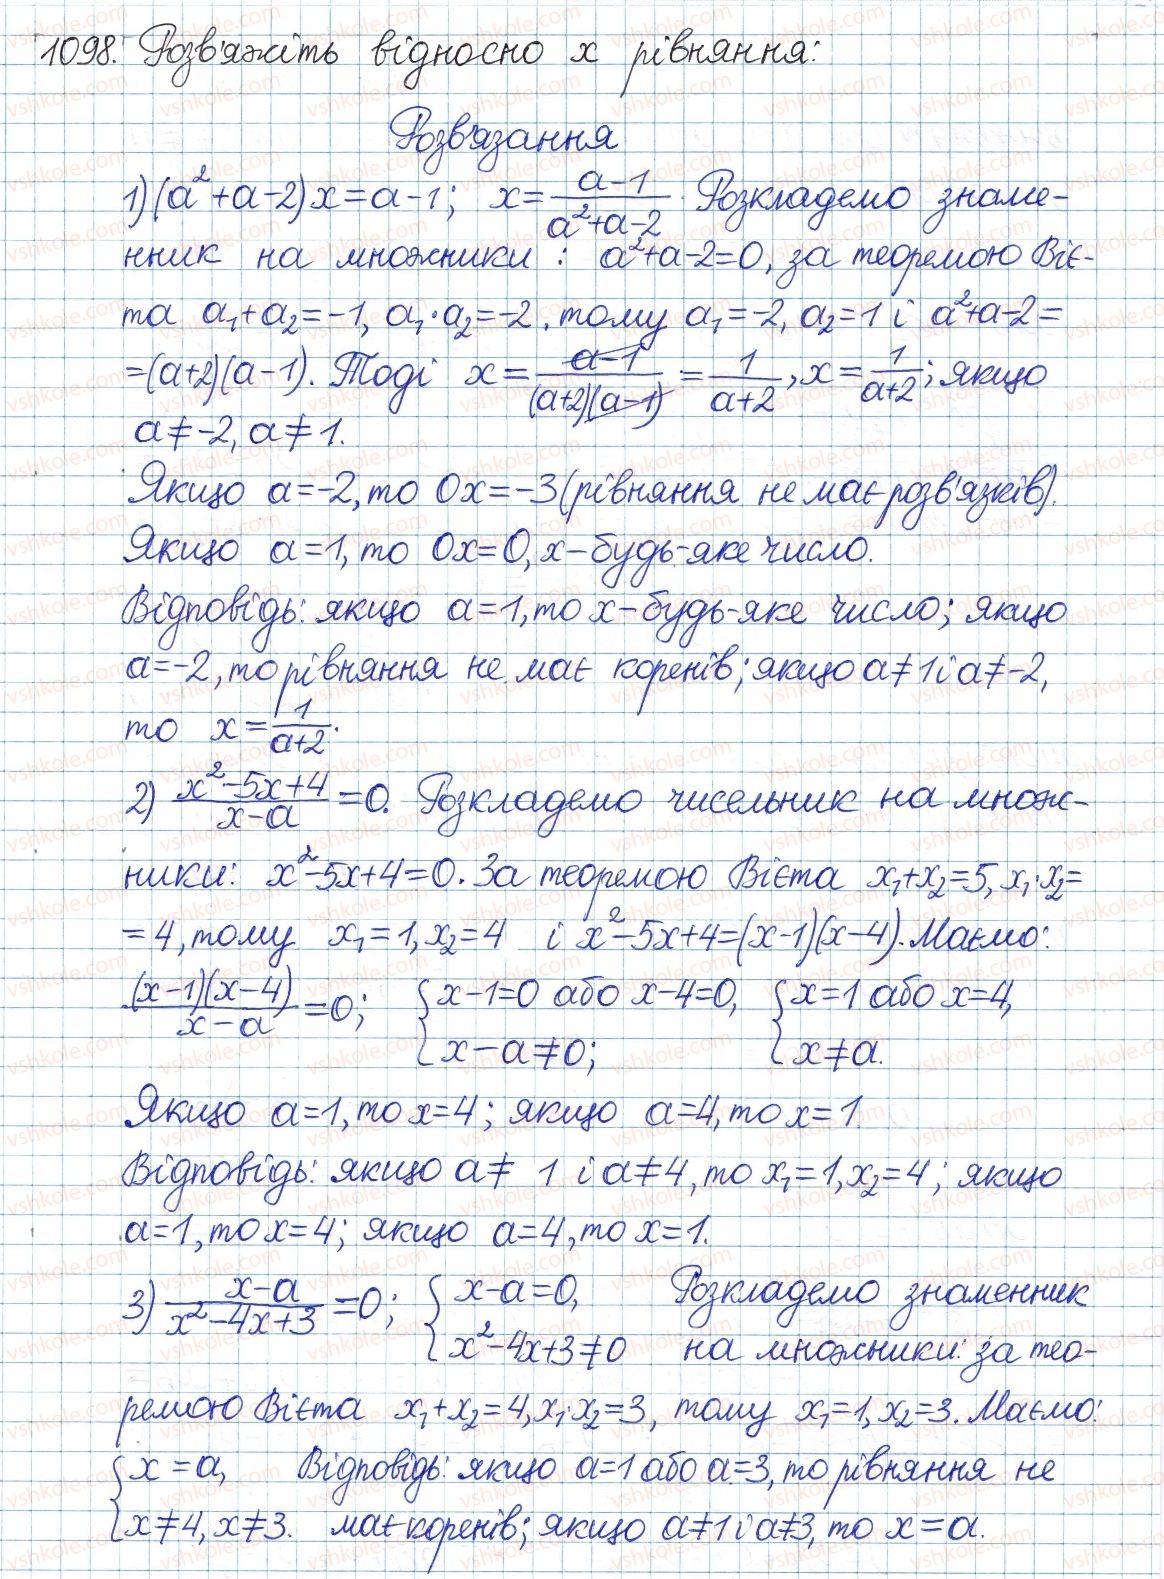 1098. Розв'яжіть відносно x рівняння:
Розв'язання
1) (a²+a-2)x=a-1; x=(a-1)/(a²+a-2). Розкладемо знаме-
нник на множники: a²+a-2=0, за теоремою Віє-
та a₁+a₂=-1, a₁·a₂=-2, тому a₁=-2, a₂=1 і a²+a-2=
=(a+2)(a-1). Тоді x=(a-1)/((a+2)(a-1))=1/(a+2), x=1/(a+2); якщо
a≠-2, a≠1.
Якщо a=-2, то 0x=-3 (рівняння не має розв'язків).
Якщо a=1, то 0x=0, x-будь-яке число.
Відповідь: якщо a=1, то x-будь-яке число; якщо
a=-2, то рівняння не має коренів; якщо a≠1 і a≠-2,
то x=1/(a+2).
2) (x²-5x+4)/(x-a)=0. Розкладемо чисельник на множ-
ники: x²-5x+4=0. За теоремою Вієта x₁+x₂=5, x₁·x₂=
=4, тому x₁=1, x₂=4 і x²-5x+4=(x-1)(x-4). Маємо:
((x-1)(x-4))/(x-a)=0; { x-1=0 або x-4=0, { x=1 або x=4,
x-a≠0; x≠a.
Якщо a=1, то x=4; якщо a=4, то x=1.
Відповідь: якщо a≠1 і a≠4, то x₁=1, x₂=4; якщо
a=1, то x=4; якщо a=4, то x=1.
3) (x-a)/(x²-4x+3)=0; { x-a=0, Розкладемо знаменник
x²-4x+3≠0 на множники: за тео-
ремою Вієта x₁+x₂=4, x₁·x₂=3, тому x₁=1, x₂=3. Маємо:
{ x=a, Відповідь: якщо a=1 або a=3, то рівняння не
x≠4, x≠3. має коренів; якщо a≠1 і a≠3, то x=a.